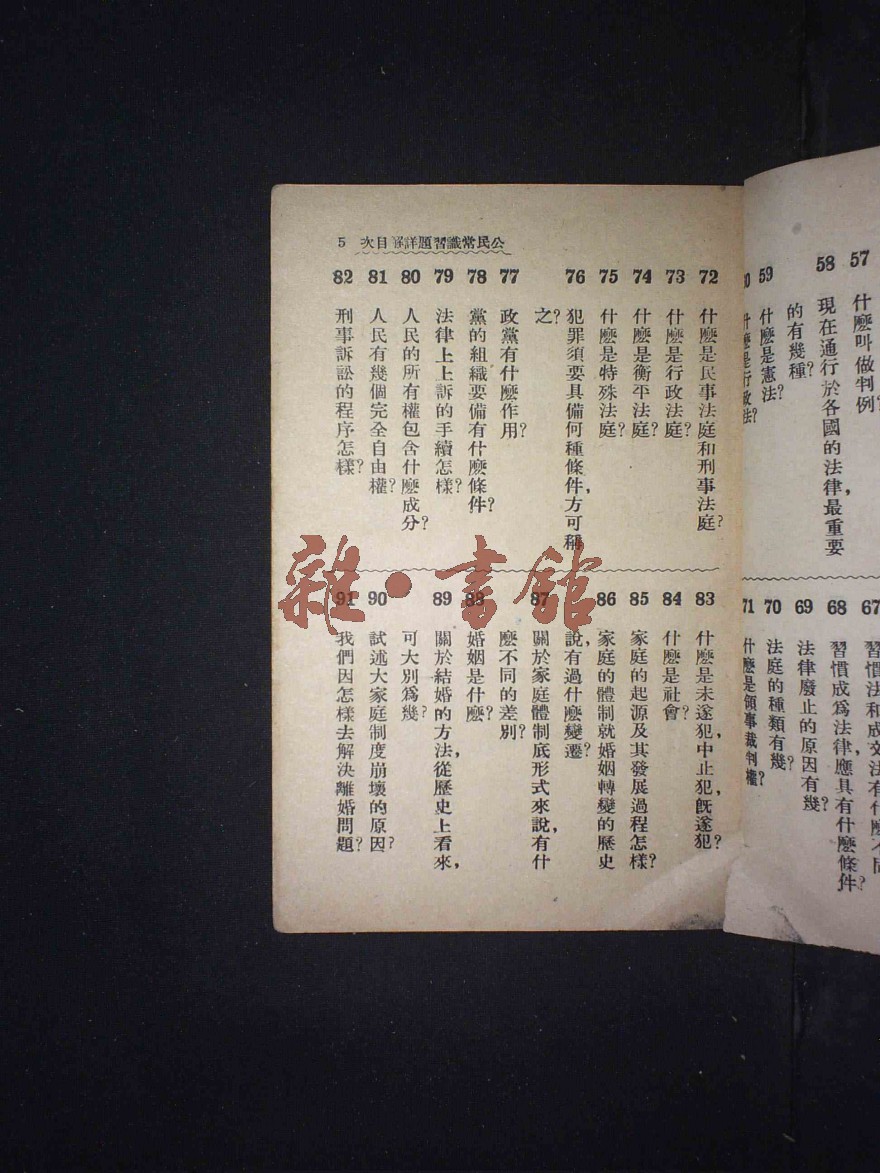 57 什麽叫做判例?
58 現在通行於各國的法律,最重要
的有幾種?
59 什麽是憲法?
什麽是行政法?
67 習慣法和成文法有什麽不同
68 習慣成爲法律應具有什麽條件?
69 法律廢止的原因有幾?
70 法庭的種類有幾?
71 什麽是領事裁判權?
公民常識習題詳解目次 5
72 什麽是民事法庭和刑事法庭?
73 什麽是行政法庭?
74 什麽是衡平法庭?
75 什麽是特殊法庭?
76 犯罪須要具備何種條件,方可稱
之?
77 政黨有什麽作用?
78 黨的組織要備有什麽條件?
79 法律上上訴的手續怎樣?
80 人民的所有權包含什麽成分?
81 人民有幾個完全自由權?
82 刑事訴訟的程序怎樣?
83 什麽是未遂犯,中止犯,旣遂犯?
84 什麽是社會?
85 家庭的起源及其發展過程怎樣?
86 家庭的體制就婚姻轉變的歷史
說,有過什麽變遷?
87 關於家庭體制底形式來說,有什
麽不同的差別?
88 婚姻是什麽?
89 關於結婚的方法,從歷史上看來,
可大別爲幾?
90 試述大家庭制度崩壞的原因?
91 我們因怎樣去解決離婚問題?
雜·書館